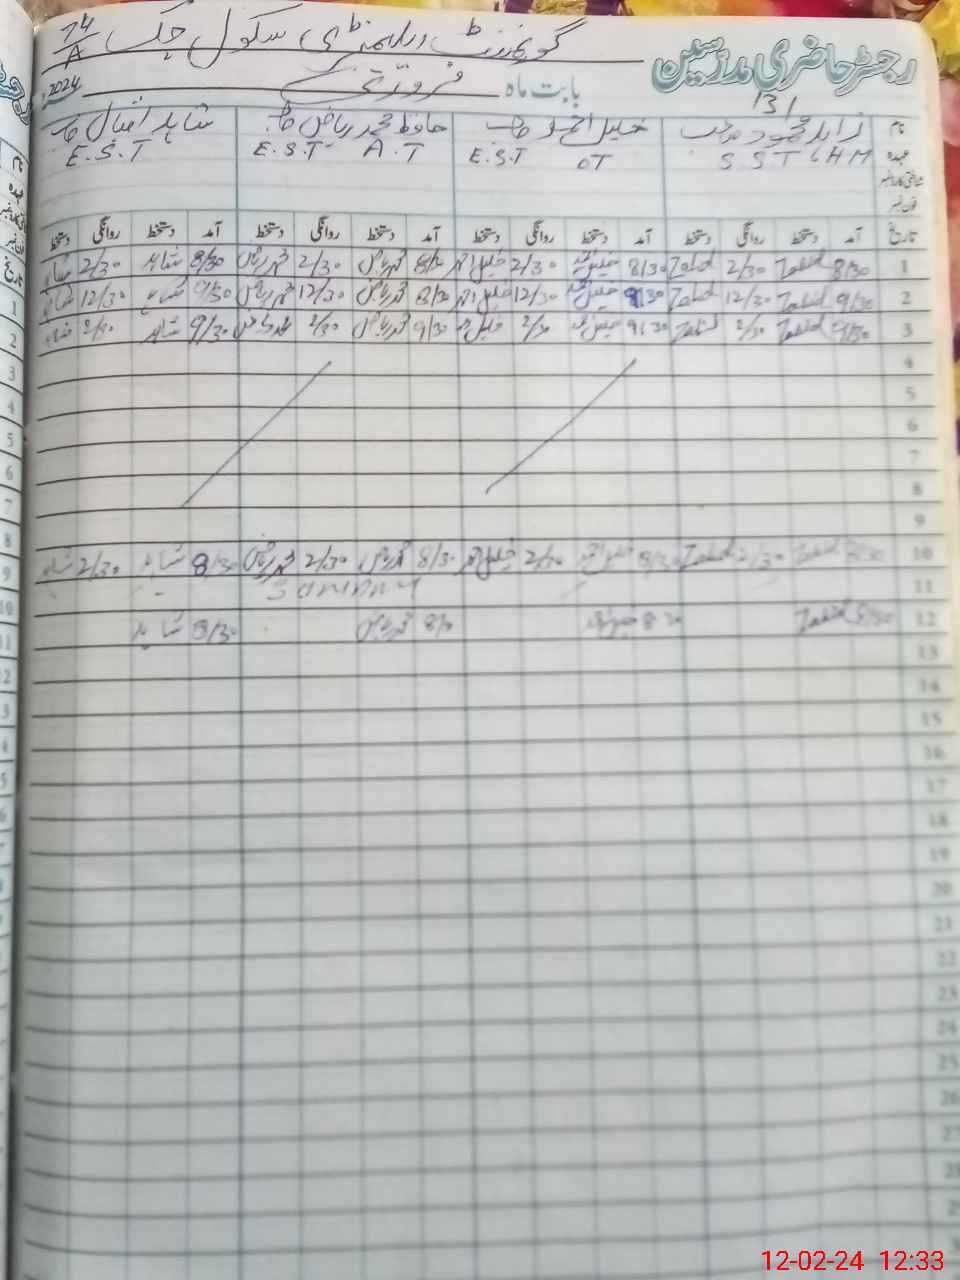 گورنمنٹ ایلیمنٹری سکول چک 74/A
رجسٹر حاضری مدرسین
2024 بابت ماہ فروری
131
نام زاہد محمود صاحب خلیل احمد صاحب حافظ محمد ریاض صاحب شاہد اقبال صاحب
عہدہ S S T , H M E.S.T OT E.S.T A.T E.S.T
شناختی کارڈ نمبر
فون نمبر
تاریخ آمد دستخط روانگی دستخط آمد دستخط روانگی دستخط آمد دستخط روانگی دستخط آمد دستخط روانگی دستخط
1 8/30 Zahid 2/30 Zahid 8/30 خلیل احمد 2/30 خلیل احمد 8/30 محمد ریاض 2/30 محمد ریاض 8/30 شاہد 2/30 شاہد
2 9/30 Zahid 12/30 Zahid 9/30 خلیل احمد 12/30 خلیل احمد 8/30 محمد ریاض 12/30 محمد ریاض 9/30 شاہد 12/30 شاہد
3 9/30 Zahid 2/30 Zahid 9/30 خلیل احمد 2/30 خلیل احمد 9/30 محمد ریاض 2/30 محمد ریاض 9/30 شاہد 2/30 شاہد
4
5
6
7
8
9
10 8/30 Zahid 2/30 Zahid 8/30 خلیل احمد 2/30 خلیل احمد 8/30 محمد ریاض 2/30 محمد ریاض 8/30 شاہد 2/30 شاہد
11 SUNDAY
12 8/30 Zahid 8 30 خلیل احمد 8/30 محمد ریاض 8/30 شاہد
13
14
15
16
17
18
19
20
21
22
23
24
25
26
27
28
29
12-02-24 12:33